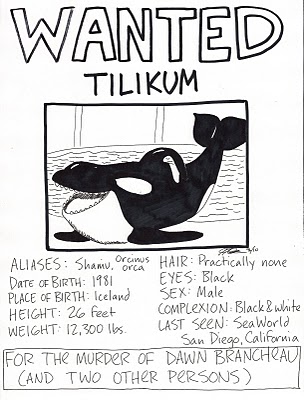 WANTED
TILIKUM
ALIASES: Shamu, Orcinus orca
DATE OF BIRTH: 1981
PLACE OF BIRTH: Iceland
HEIGHT: 26 feet
WEIGHT: 12,300 lbs.
HAIR: Practically none
EYES: Black
SEX: Male
COMPLEXION: Black & white
LAST SEEN: SeaWorld
San Diego, California
FOR THE MURDER OF DAWN BRANCHEAU
(AND TWO OTHER PERSONS)